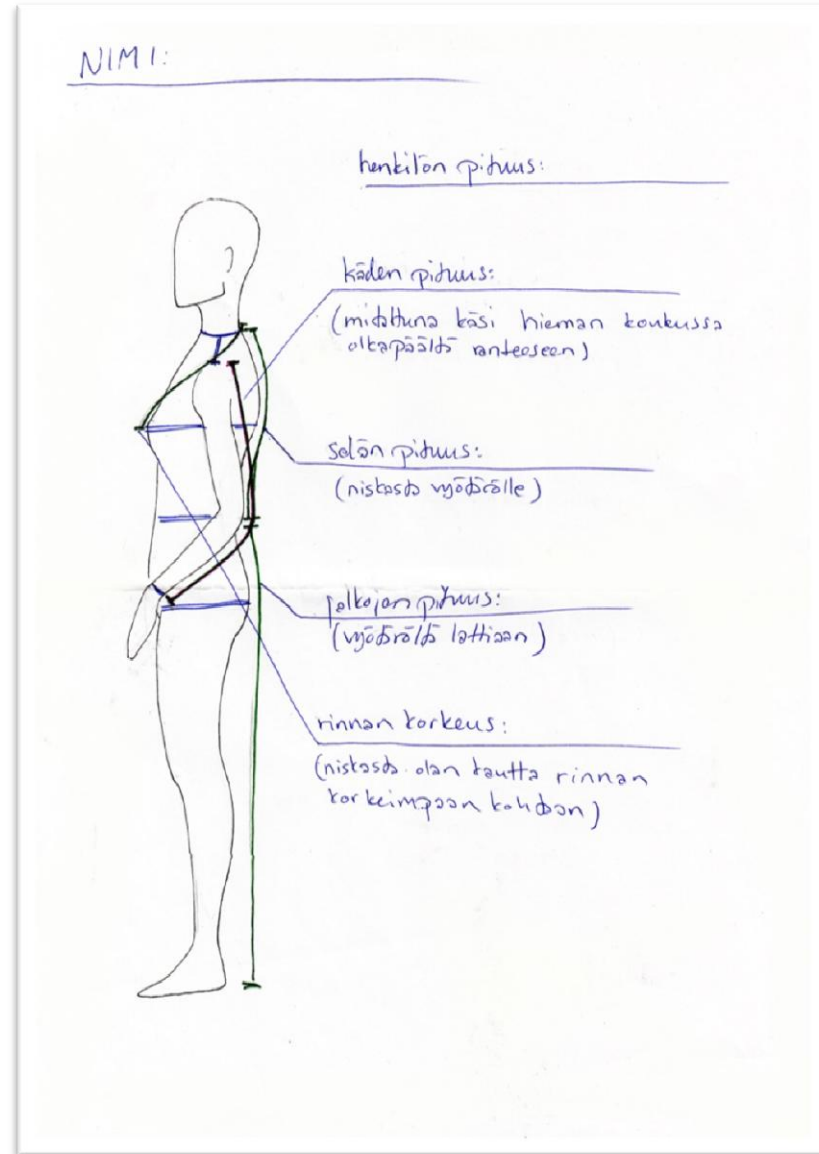 NIMI:
henkilön pituus:
käden pituus:
(mitattuna käsi hieman koukussa
olkapäältä ranteeseen)
selän pituus:
(niskasta vyötärölle)
jalkojen pituus:
(vyötäröltä lattiaan)
rinnan korkeus:
(niskasta olan kautta rinnan
korkeimpaan kohtaan)